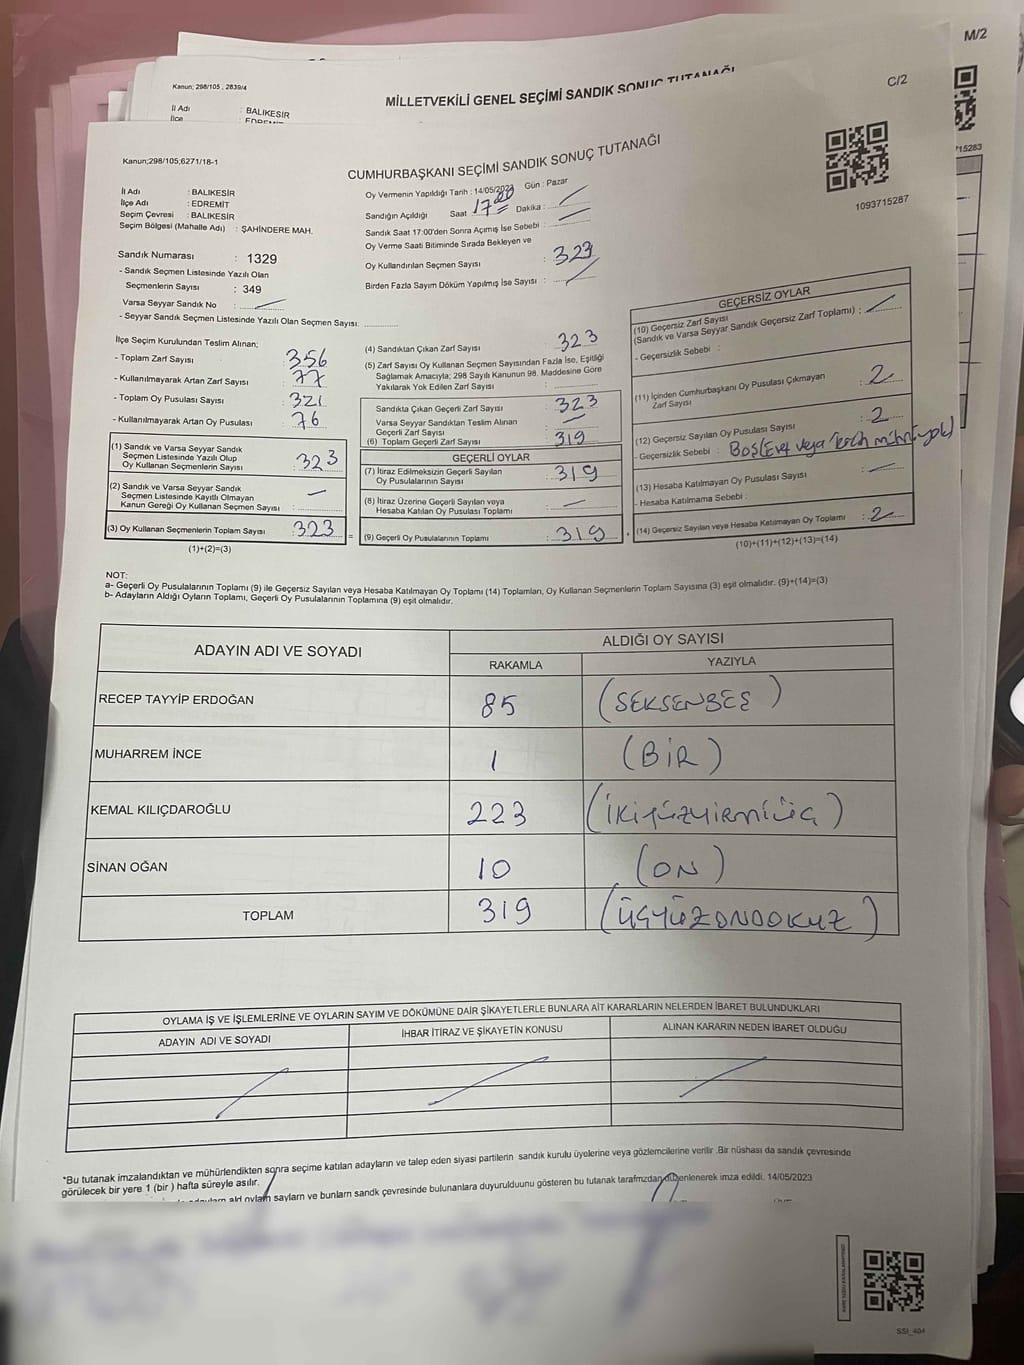 M/2
Kanun; 298/105 , 2839/4
MİLLETVEKİLİ GENEL SEÇİMİ SANDIK SONUÇ TUTANAĞI
C/2
İl Adı : BALIKESİR
İlçe EDREMİT
715283
Kanun;298/105;6271/18-1
CUMHURBAŞKANI SEÇİMİ SANDIK SONUÇ TUTANAĞI
1093715287
İl Adı : BALIKESİR
İlçe Adı : EDREMİT
Seçim Çevresi : BALIKESİR
Seçim Bölgesi (Mahalle Adı) : ŞAHİNDERE MAH.
Sandık Numarası : 1329
- Sandık Seçmen Listesinde Yazılı Olan
Seçmenlerin Sayısı : 349
Varsa Seyyar Sandık No :
- Seyyar Sandık Seçmen Listesinde Yazılı Olan Seçmen Sayısı:
Oy Vermenin Yapıldığı Tarih : 14/05/2023 Gün : Pazar
Sandığın Açıldığı Saat 17:00 Dakika :
Sandık Saat 17:00'den Sonra Açımış İse Sebebi :
Oy Verme Saati Bitiminde Sırada Bekleyen ve
Oy Kullandırılan Seçmen Sayısı : 323
Birden Fazla Sayım Döküm Yapılmış İse Sayısı :
İlçe Seçim Kurulundan Teslim Alınan;
- Toplam Zarf Sayısı : 356
- Kullanılmayarak Artan Zarf Sayısı : 77
- Toplam Oy Pusulası Sayısı : 321
- Kullanılmayarak Artan Oy Pusulası : 76
(1) Sandık ve Varsa Seyyar Sandık
Seçmen Listesinde Yazılı Olup
Oy Kullanan Seçmenlerin Sayısı : 323
(2) Sandık ve Varsa Seyyar Sandık
Seçmen Listesinde Kayıtlı Olmayan
Kanun Gereği Oy Kullanan Seçmen Sayısı :
(3) Oy Kullanan Seçmenlerin Toplam Sayısı : 323
(1)+(2)=(3)
(4) Sandıktan Çıkan Zarf Sayısı : 323
(5) Zarf Sayısı Oy Kullanan Seçmen Sayısından Fazla İse, Eşitliği
Sağlamak Amacıyla; 298 Sayılı Kanunun 98. Maddesine Göre
Yakılarak Yok Edilen Zarf Sayısı :
Sandıkta Çıkan Geçerli Zarf Sayısı : 323
Varsa Seyyar Sandıktan Teslim Alınan
Geçerli Zarf Sayısı :
(6) Toplam Geçerli Zarf Sayısı : 319
GEÇERLİ OYLAR
(7) İtiraz Edilmeksizin Geçerli Sayılan
Oy Pusulalarının Sayısı : 319
(8) İtiraz Üzerine Geçerli Sayılan veya
Hesaba Katılan Oy Pusulası Toplamı :
(9) Geçerli Oy Pusulalarının Toplamı : 319
GEÇERSİZ OYLAR
(10) Geçersiz Zarf Sayısı
(Sandık ve Varsa Seyyar Sandık Geçersiz Zarf Toplamı) :
- Geçersizlik Sebebi :
(11) İçinden Cumhurbaşkanı Oy Pusulası Çıkmayan
Zarf Sayısı : 2
(12) Geçersiz Sayılan Oy Pusulası Sayısı : 2
- Geçersizlik Sebebi : Boş(Evet veya tercih mührü yok)
(13) Hesaba Katılmayan Oy Pusulası Sayısı :
- Hesaba Katılmama Sebebi :
(14) Geçersiz Sayılan veya Hesaba Katılmayan Oy Toplamı : 2
(10)+(11)+(12)+(13)=(14)
NOT:
a- Geçerli Oy Pusulalarının Toplamı (9) ile Geçersiz Sayılan veya Hesaba Katılmayan Oy Toplamı (14) Toplamları, Oy Kullanan Seçmenlerin Toplam Sayısına (3) eşit olmalıdır. (9)+(14)=(3)
b- Adayların Aldığı Oyların Toplamı, Geçerli Oy Pusulalarının Toplamına (9) eşit olmalıdır.
ADAYIN ADI VE SOYADI ALDIĞI OY SAYISI
RAKAMLA YAZIYLA
RECEP TAYYİP ERDOĞAN 85 (SEKSENBEŞ)
MUHARREM İNCE 1 (BİR)
KEMAL KILIÇDAROĞLU 223 (İKİYÜZYİRMİÜÇ)
SİNAN OĞAN 10 (ON)
TOPLAM 319 (ÜÇYÜZONDOKUZ)
OYLAMA İŞ VE İŞLEMLERİNE VE OYLARIN SAYIM VE DÖKÜMÜNE DAİR ŞİKAYETLERLE BUNLARA AİT KARARLARIN NELERDEN İBARET BULUNDUKLARI
ADAYIN ADI VE SOYADI İHBAR İTİRAZ VE ŞİKAYETİN KONUSU ALINAN KARARIN NEDEN İBARET OLDUĞU
*Bu tutanak imzalandıktan ve mühürlendikten sonra seçime katılan adayların ve talep eden siyasi partilerin sandık kurulu üyelerine veya gözlemcilerine verilir .Bir nüshası da sandık çevresinde
görülecek bir yere 1 (bir ) hafta süreyle asılır.
ald oyların sayların ve bunların sandk çevresinde bulunanlara duyurulduunu gösteren bu tutanak tarafmzdan düzenlenerek imza edildi. 14/05/2023
SSI_404